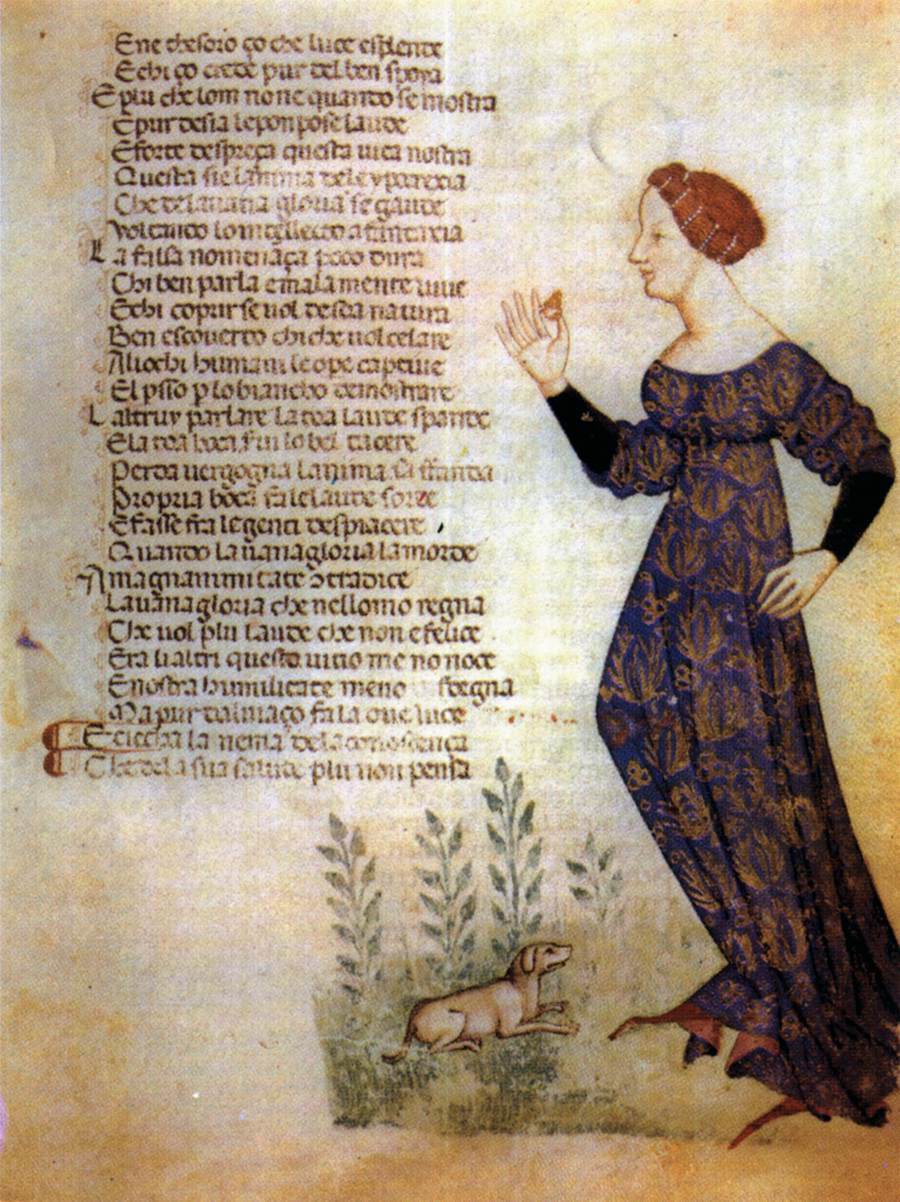 Ene thesoro ço che luce esplente
Echi ço crede pur del ben spera
E piu che lom non e quando se mostra
E pur desia le pompose laude
E forte despreça questa uita nostra
Questa sie lanima de le yparexia
Che de la uana gloria se gaude
Voltando lo intellecto a fantaxia
La falsa nomenaça poco dura
Chi ben parla e mala mente uiue
Echi coprir se uol de sça natura
Ben escouerto chi che uol celare
Ali ochi humani le ope captiue
El pssio p lo biancho demostrare
Laltruy parlare la toa laude spande
Ela toa boca fin lo bel tacere
Perda uergogna lanima
Propria boca fa le laude sorde
E fasse fra le genti despiacere
Quando la uana gloria la morde
A magnanimitate ɔtradice
La uana gloria che nellomo regna
Che uol plu laude che non e felice
Fra li altri questo uitio me no noce
E nostra humilitate meno sdegna
Ma pur dalmaço fa la oue luce
E ciecha la mente de la conoscença
Che de la sua salute plu non pensa